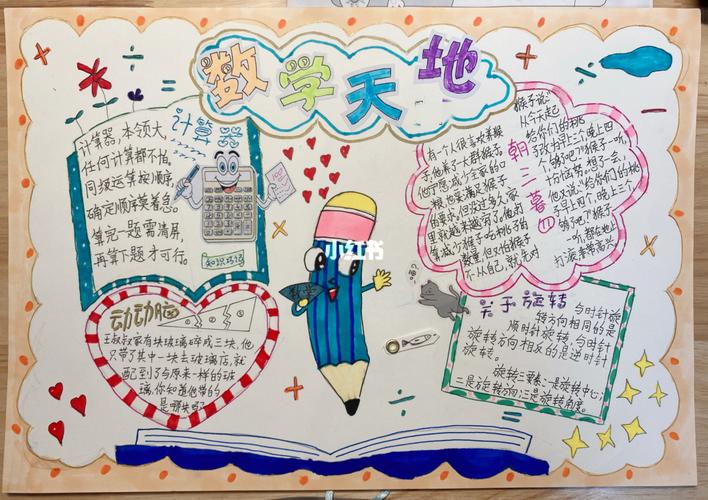 数学天地
计算器
计算器,本领大,
任何计算都不怕。
同级运算按顺序,
确定顺序莫着急。
算完一题需清屏,
再算下题才可行。
知识巧记
动动脑
1
2
3
王叔叔家有块玻璃碎成三块,他
只带了其中一块去玻璃店,就
配到了与原来一样的玻
璃。你知道他带的
是哪块吗?
小红书
朝三暮四
有个人很喜欢养猴
子,他养了大群猴子。
他宁愿减少全家的口
粮也要满足猴子
的要求,但没过多久,家
里就越来越穷了。他打
算减少猴子吃桃子的
数量,但又怕猴子
不从自己,就先对
猴子说:
从今天起
给你们的桃
子改为早上三个,晚上四
个够了吧?猴子一听,
十分恼怒。想了一会,
他又说:给你们的桃
子早上四个,晚上三个
够了吧?猴子
一听,都在地上
打滚,非常高兴
喵!
关于旋转
与时针旋
转方向相同的是
顺时针旋转,与时针
旋转方向相反的是逆时针
旋转。
旋转三要素:一是旋转中心;
二是旋转方向;三是旋转角度。